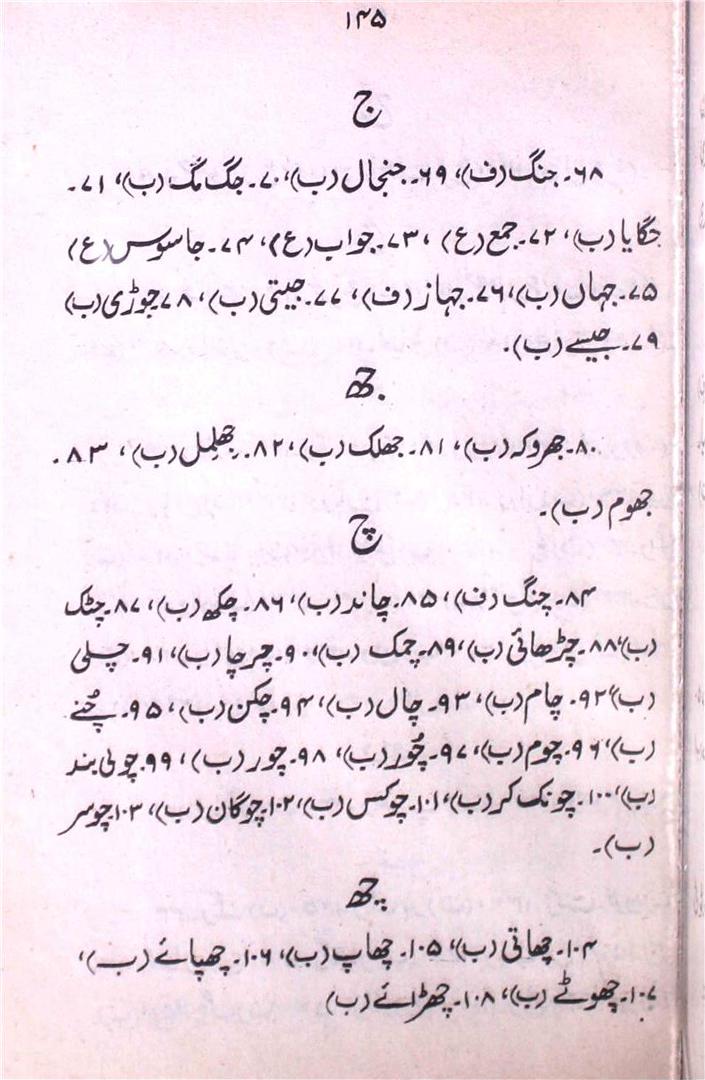 ۱۴۵
ج
۶۸۔ جنگ (ف)، ۶۹۔ جنجال (ب)، ۷۰۔ جگ مگ (ب)، ۷۱۔
جگایا (ب)، ۷۲۔ جمع (ع)، ۷۳۔ جواب (ع)، ۷۴۔ جاسوس (ع)
۷۵۔ جہاں (ب)، ۷۶۔ جہاز (ف)، ۷۷۔ جیتی (ب)، ۷۸ جوڑی (ب)
۷۹۔ جیسے (ب)۔
جھ
۸۰۔ جھروکہ (ب)، ۸۱۔ جھلک (ب)، ۸۲۔ جھلمل (ب)، ۸۳۔
جھوم (ب)۔
چ
۸۴۔ چنگ (ف)، ۸۵۔ چاند (ب)، ۸۶۔ چکھ (ب)، ۸۷۔ چٹک
(ب)، ۸۸۔ چڑھائی (ب)، ۸۹۔ چمک (ب)، ۹۰۔ چرچا (ب)، ۹۱۔ چلی
(ب)، ۹۲۔ چام (ب)، ۹۳۔ چال (ب)، ۹۴۔ چکن (ب)، ۹۵۔ چُنے
(ب)، ۹۶۔ چوم (ب)، ۹۷۔ چُور (ب)، ۹۸۔ چور (ب)، ۹۹۔ چولی بند
(ب)، ۱۰۰۔ چونک کر (ب)، ۱۰۱۔ چوکس (ب)، ۱۰۲۔ چوگان (ب)، ۱۰۳۔ چوسر
(ب)۔
چھ
۱۰۴۔ چھاتی (ب)، ۱۰۵۔ چھاپ (ب)، ۱۰۶۔ چھپائے (ب)،
۱۰۷۔ چھوٹے (ب)، ۱۰۸۔ چھڑائے (ب)